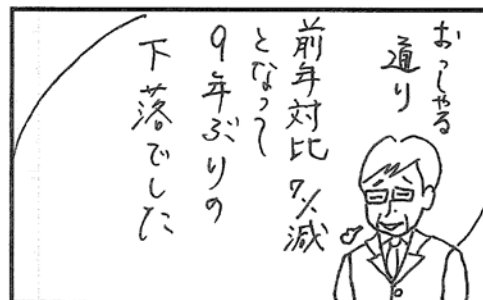 おっしゃる
通り
前年対比7%減
となって
9年ぶりの
下落でした